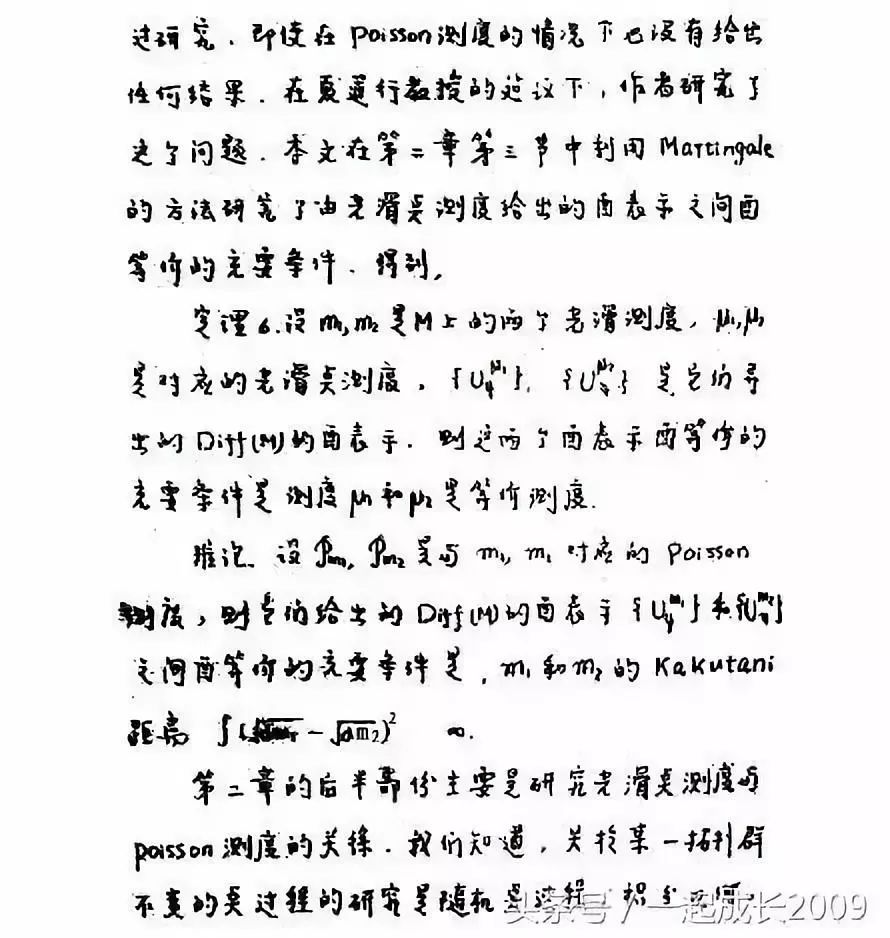 过研究．即使在 Poisson 测度的情况下也没有给出
任何结果．在夏道行教授的建议下，作者研究了
这个问题．本文在第二章第三节中利用 Martingale
的方法研究了由光滑点测度给出的酉表示之间酉
等价的充要条件．得到，
定理 6．设 m₁, m₂ 是 M 上的两个光滑测度，μ₁, μ₂
是对应的光滑点测度，{U_ψ^{μ₁}}, {U_ψ^{μ₂}} 是它们导
出的 Diff(M) 的酉表示．则这两个酉表示酉等价的
充要条件是测度 μ₁ 和 μ₂ 是等价测度．
推论．设 P_{m₁}, P_{m₂} 是与 m₁, m₂ 对应的 Poisson
测度，则它们给出的 Diff(M) 的酉表示 {U_ψ^{m₁}} 和 {U_ψ^{m₂}}
之间酉等价的充要条件是，m₁ 和 m₂ 的 Kakutani
距离 ∫( - √dm₂)² ∞．
第二章的后半部份主要是研究光滑点测度与
poisson 测度的关系．我们知道，关于某一拓扑群
不变的点过程的研究是随机点过程 积分
头条号 / 一起成长2009